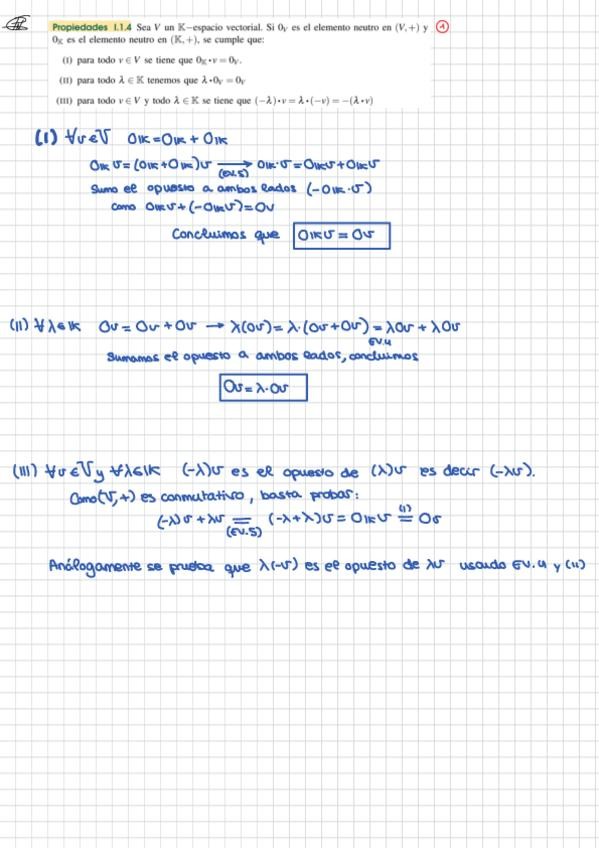 Propiedades 1.1.4 Sea V un 𝕂−espacio vectorial. Si 0_V es el elemento neutro en (V,+) y ①
0_𝕂 es el elemento neutro en (𝕂,+), se cumple que:
(I) para todo v ∈ V se tiene que 0_𝕂 • v = 0_V.
(II) para todo λ ∈ 𝕂 tenemos que λ • 0_V = 0_V
(III) para todo v ∈ V y todo λ ∈ 𝕂 se tiene que (−λ) • v = λ • (−v) = −(λ • v)
(I) ∀v∈V 0_𝕂 = 0_𝕂 + 0_𝕂
0_𝕂 v = (0_𝕂 + 0_𝕂)v ⟶ (EV.5) 0_𝕂·v = 0_𝕂v + 0_𝕂v
Sumo el opuesto a ambos lados (-0_𝕂·v)
como 0_𝕂v + (-0_𝕂v) = 0v
Concluimos que 0_𝕂v = 0v
(II) ∀λ∈𝕂 0v = 0v + 0v → λ(0v) = λ·(0v+0v) = λ0v + λ0v
EV.4
Sumamos el opuesto a ambos lados, concluimos
0v = λ·0v
(III) ∀v∈V y ∀λ∈𝕂 (-λ)v es el opuesto de (λ)v es decir (-λv).
Como (V,+) es conmutativo, basta probar:
(-λ)v + λv = (-λ+λ)v = 0_𝕂v =(I) 0v
(EV.5)
Análogamente se prueba que λ(-v) es el opuesto de λv usando EV.4 y (II)